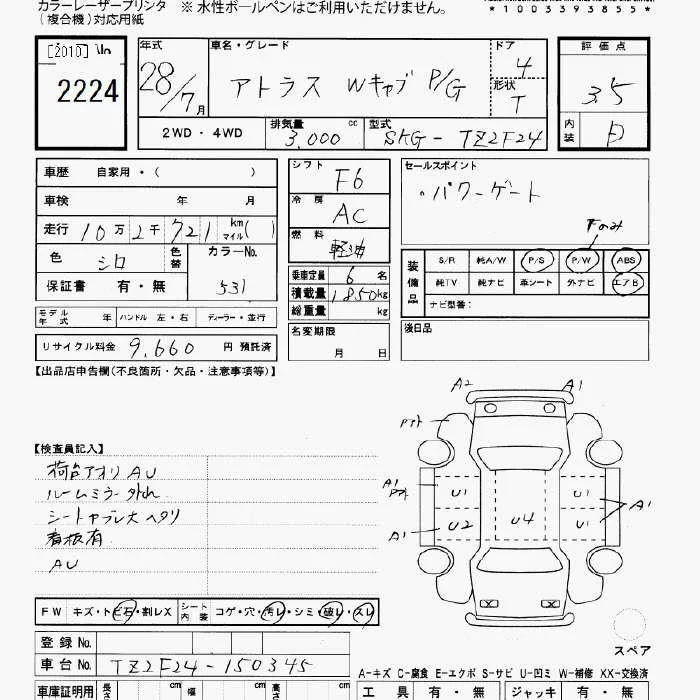 カラーレーザープリンタ ※ 水性ボールペンはご利用いただけません。
(複合機)対応用紙
*1003393855*
[2010]
2224
年式 車名・グレード ドア 評価点
28/7月 アトラス Wキャブ P/G 4 3.5
形状 T
内装 D
2WD・4WD 排気量 3,000 cc 型式 SKG-TZ2F24
車歴 自家用・( )
車検 年 月
走行 10万2千721 km マイル( )
色 シロ 色替 カラーNo. 531
保証書 有・無
シフト F6
冷房 AC
燃料 軽油
乗車定員 6 名
積載量 1850kg
総重量 kg
セールスポイント
・パワーゲート
Fのみ
装備品 S/R 純A/W P/S P/W ABS
純TV 純ナビ 革シート 外ナビ エアB
ナビ型番:
モデル年式 年 ハンドル 左・右 ディーラー・並行
名変期限 月 日
後日品
リサイクル料金 9,660 円 預託済
【出品店申告欄(不良箇所・欠品・注意事項等)】
【検査員記入】
荷台アオリ AU
ルームミラー外れ
シートヤブレ大 ヘタリ
看板有
AU
A2 A1
A1
U1 U1 A1
A1 U2 U4 U1
FW キズ・トビ石・割レX シート内装 コゲ・穴・汚レ・シミ・破レ・スレ
スペア
登録No.
車台No. TZ2F24-150345
A-キズ C-腐食 E-エクボ S-サビ U-凹ミ W-補修 XX-交換済
車庫証明用 長さ cm 幅 cm 高さ cm 工具 有・無 ジャッキ 有・無